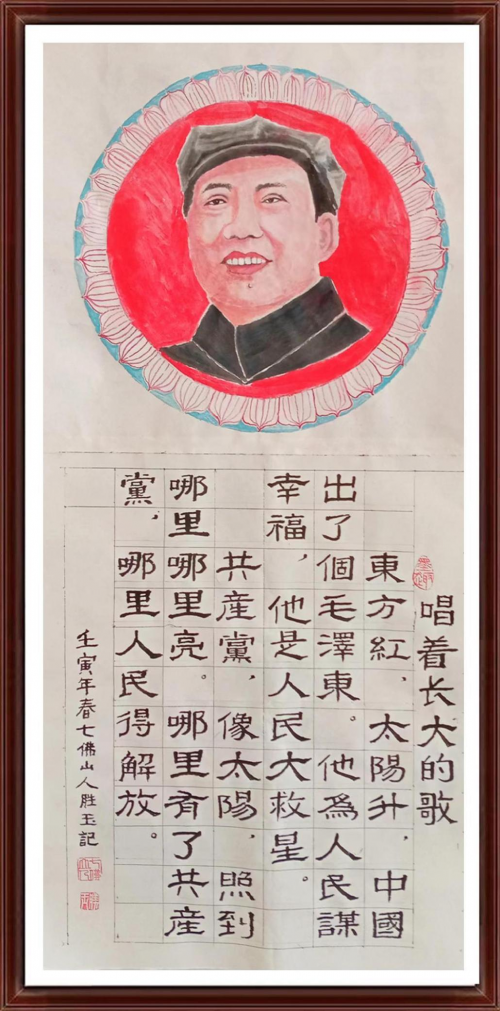 唱着长大的歌
東方紅、太陽升、中國
出了個毛澤東。他為人民謀
幸福、他是人民大救星。
共産黨、像太陽、照到
哪里哪里亮。哪里有了共産
黨、哪里人民得解放。
壬寅年春七佛山人胜玉記